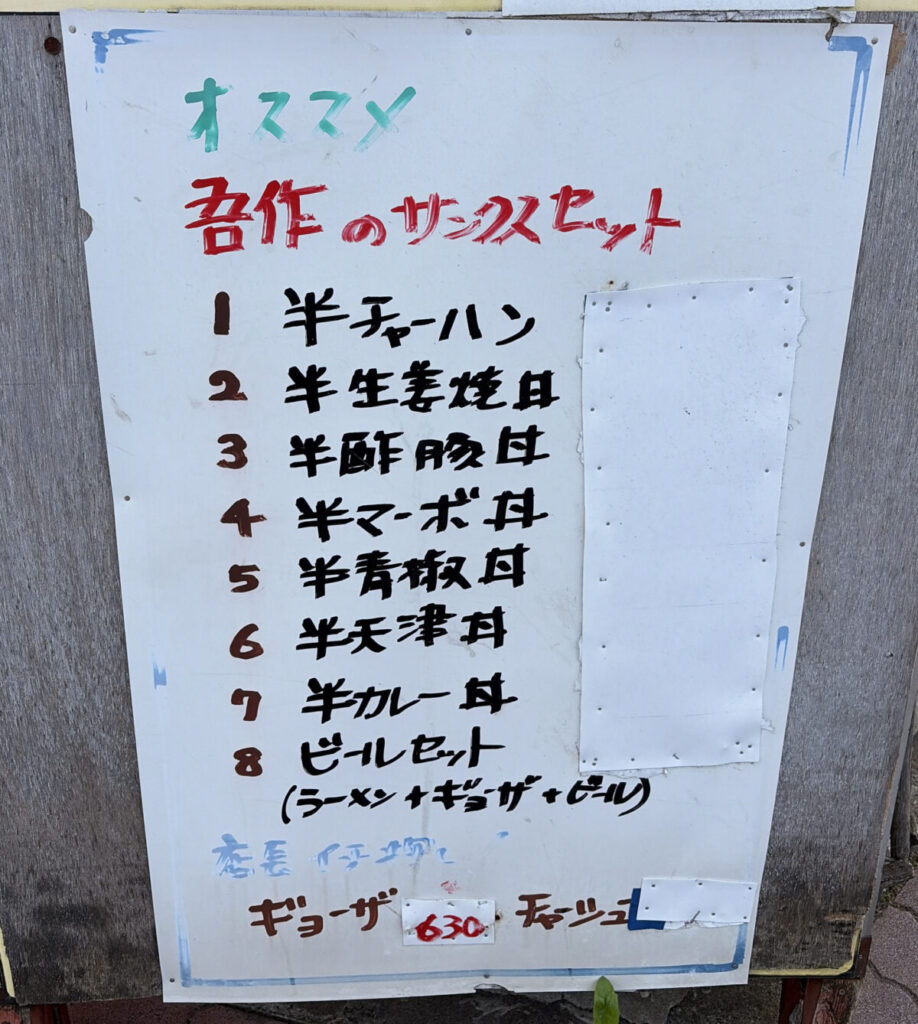 オススメ
吾作のサンクスセット
1 半チャーハン
2 半生姜焼丼
3 半酢豚丼
4 半マーボ丼
5 半青椒丼
6 半天津丼
7 半カレー丼
8 ビールセット
(ラーメン+ギョーザ+ビール)
店長
ギョーザ 630 チャーシュ